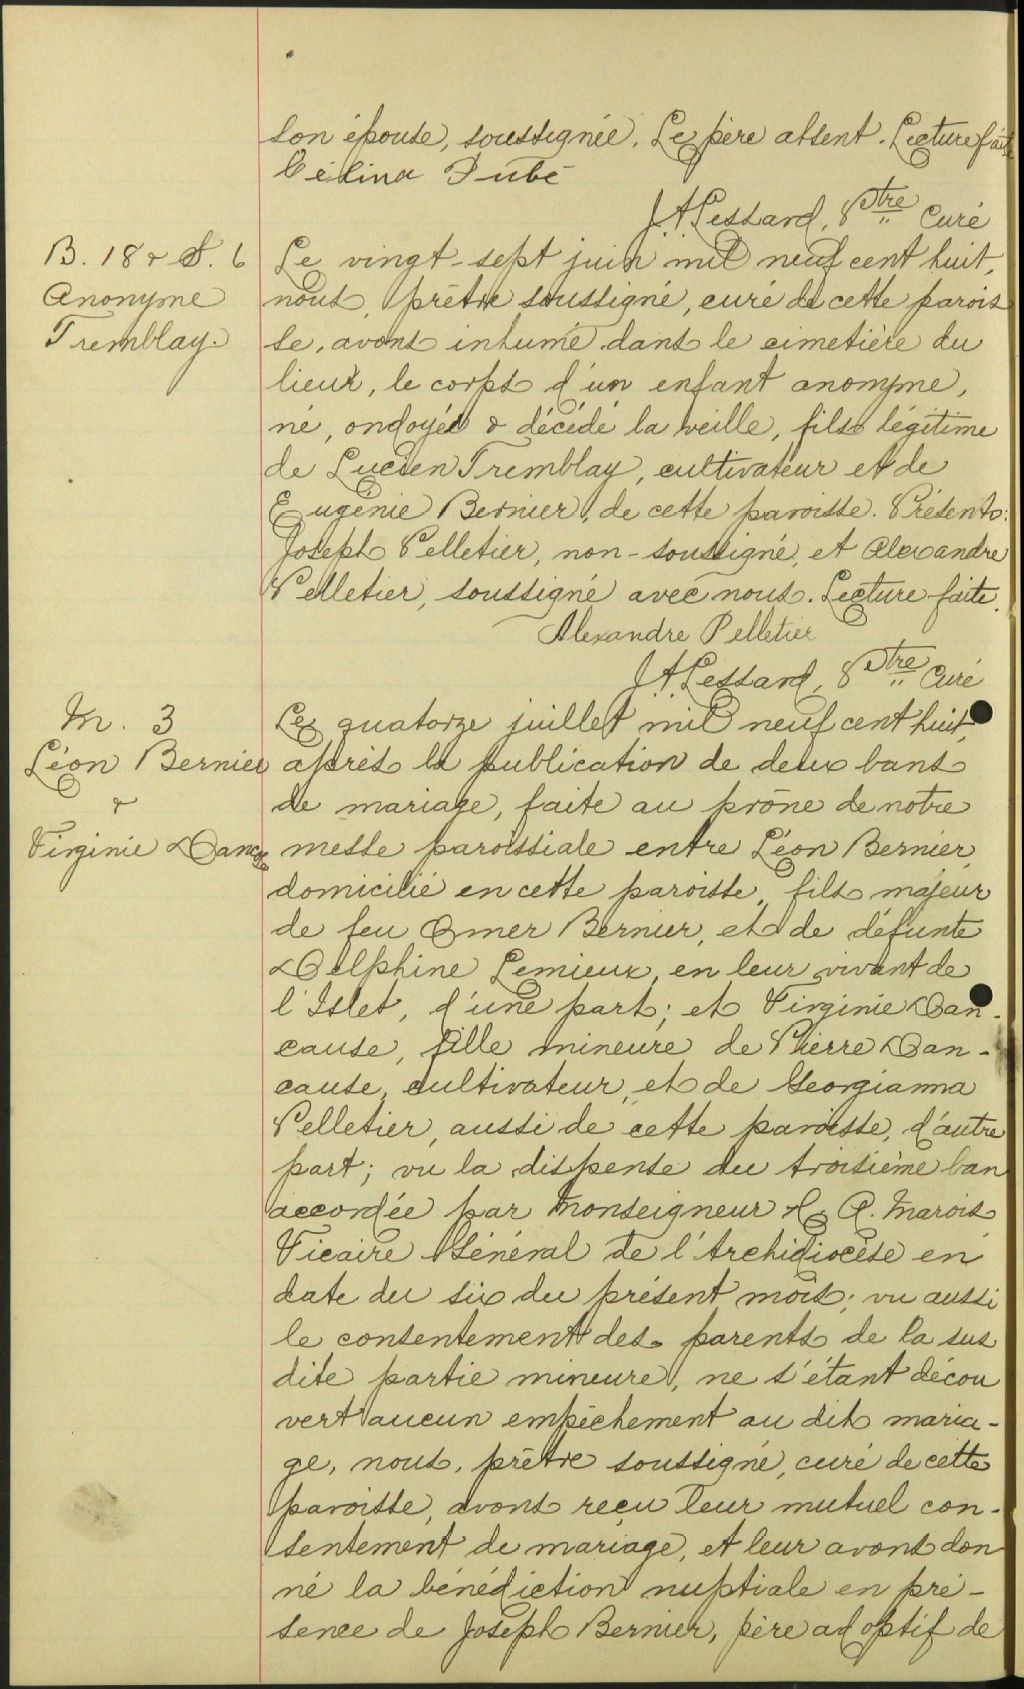 son épouse, soussignée. Le père absent. Lecture faite
Célina Dubé
J A Lessard, Ptre Curé
B. 18 & S. 6
Anonyme
Tremblay.
Le vingt-sept juin mil neuf cent huit,
nous, prêtre soussigné, curé de cette parois
se, avons inhumé dans le cimetière du
lieux, le corps d'un enfant anonyme,
né, ondoyé & décédé la veille, fils légitime
de Lucien Tremblay, cultivateur et de
Eugénie Bernier, de cette paroisse. Présents:
Joseph Pelletier, non-soussigné, et Alexandre
Pelletier, soussigné avec nous. Lecture faite.
Alexandre Pelletier
J A Lessard, Ptre Curé
M. 3
Léon Bernier
&
Virginie Dancause
Le quatorze juillet mil neuf cent huit,
après la publication de deux bans
de mariage, faite au prône de notre
messe paroissiale entre Léon Bernier,
domicilié en cette paroisse, fils majeur
de feu Omer Bernier, et de défunte
Delphine Lemieux, en leur vivant de
l'Islet, d'une part; et Virginie Dan-
cause, fille mineure de Pierre Dan-
cause, cultivateur, et de Georgianna
Pelletier, aussi de cette paroisse, d'autre
part; vu la dispense du troisième ban
accordée par Monseigneur C. A. Marois
Vicaire Général de l'Archidiocèse en
date du six du présent mois; vu aussi
le consentement des parents de la sus
dite partie mineure, ne s'étant décou
vert aucun empêchement au dit maria-
ge, nous, prêtre soussigné, curé de cette
paroisse, avons reçu leur mutuel con-
sentement de mariage, et leur avons don
né la bénédiction nuptiale en pré-
sence de Joseph Bernier, père adoptif de